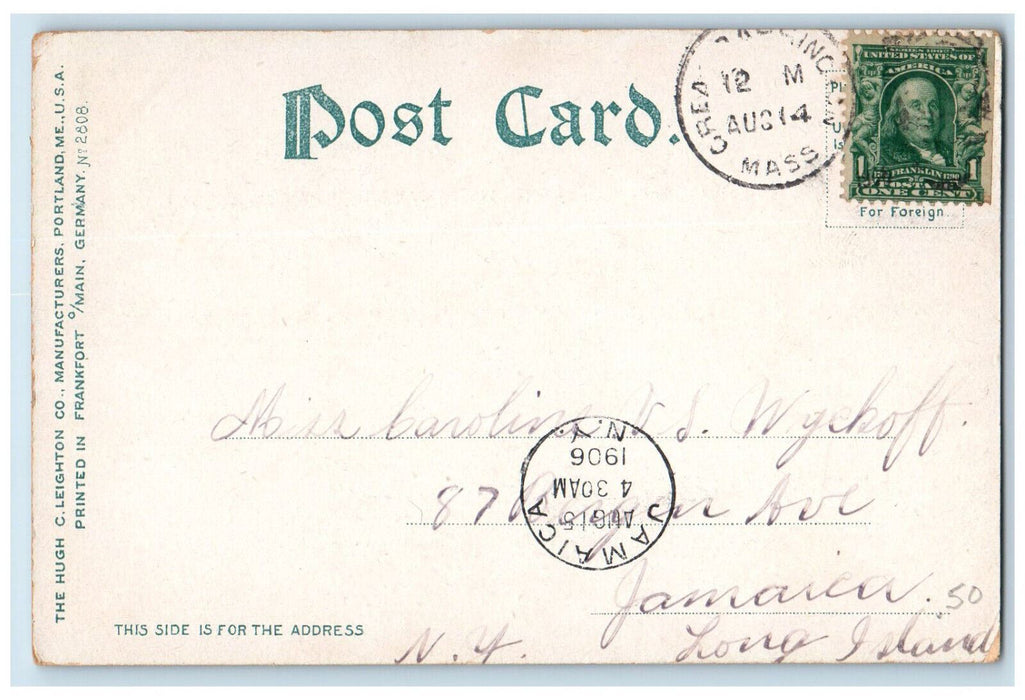 Post Card.
GREAT
12 M
AUG 14
MASS
SERIES 1902
UNITED STATES OF
AMERICA
1 FRANKLIN 1
ONE CENT
For Foreign
THE HUGH C. LEIGHTON CO., MANUFACTURERS, PORTLAND, ME., U.S.A.
PRINTED IN FRANKFORT o/MAIN, GERMANY. No 2808.
Miss Caroline V. S. Wyckoff.
JAMAICA
AUG 15
4 30AM
1906
N.Y.
87 Ave
Jamaica.
.50
N.Y. Long Island
THIS SIDE IS FOR THE ADDRESS